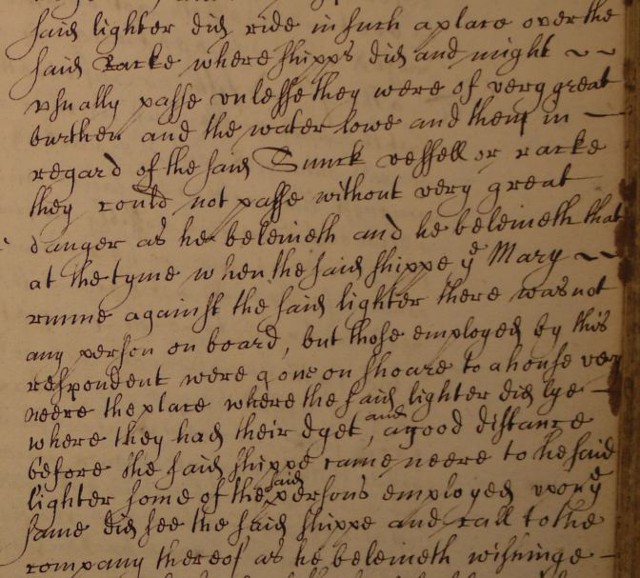 said lighter did ride in such a place over the
said Racke where shipps did and might ~ ~
vsually passe vnlesse they were of very great
burthen and the water lowe and then in —
regard of the said Sunck vessell or racke
they could not passe without very great
danger as he beleiveth and he beleiveth that
at the tyme when the said shippe yᵉ Mary ~ ~
runne against the said lighter there was not
any person on board, but those employed by this
respondent were gone on shoare to a house very
neere the place where the said lighter did lye —
where they had their dyet, and a good distance
before the said shippe came neere to the said
lighter some of the said persons employed vpon yᵉ
same did see the said shippe and call to the
company thereof as he beleiveth wishinge —